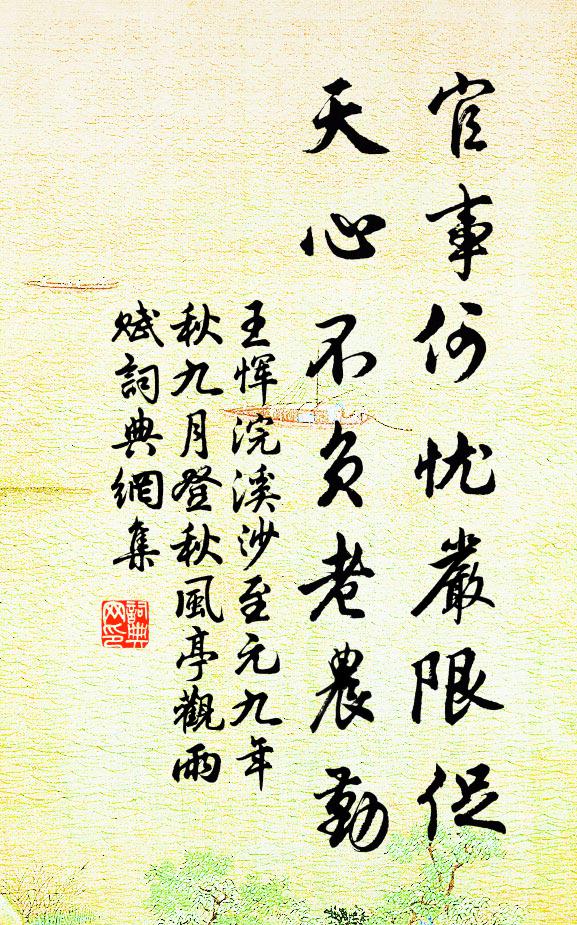 官事何忧嚴限促
天心不负老農勤
王惲浣溪沙至元九年
秋九月登秋風亭觀雨
賦詞典網集
詞典
网印